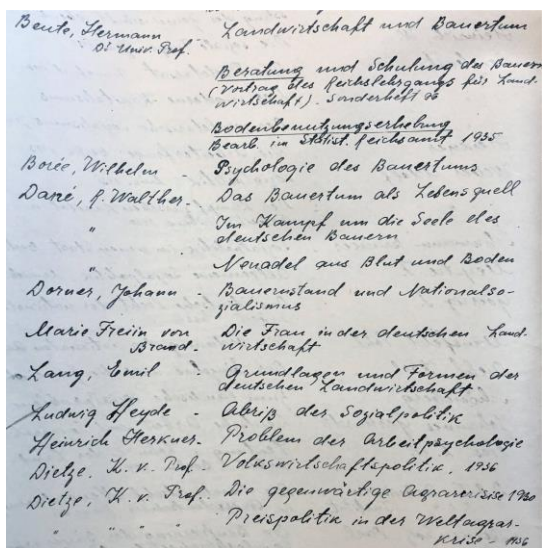 Bente, Hermann Landwirtschaft und Bauertum
Dr. Univ. Prof.
Beratung und Schulung des Bauern
(Vortrag des Reichslehrgangs für Land-
wirtschaft). Sonderheft 96
Bodenbenutzungserhebung
Bearb. im Statist. Reichsamt 1935
Borée, Wilhelm - Psychologie des Bauertums
Darré, R. Walther. - Das Bauertum als Lebensquell
" Im Kampf um die Seele des
deutschen Bauern
" Neuadel aus Blut und Boden
Dorner, Johann - Bauernstand und Nationalso-
zialismus
Marie Freiin von Die Frau in der deutschen Land-
Brand. - wirtschaft
Lang, Emil - Grundlagen und Formen der
deutschen Landwirtschaft
Ludwig Heyde - Abriß der Sozialpolitik
Heinrich Herkner. - Problem der Arbeitpsychologie
Dietze. K. v. Prof. - Volkswirtschaftspolitik. 1936
Dietze, K. v. Prof. - Die gegenwärtige Agrarcrisise 1930
" " " Preispolitik in der Weltagrar-
krise - 1936